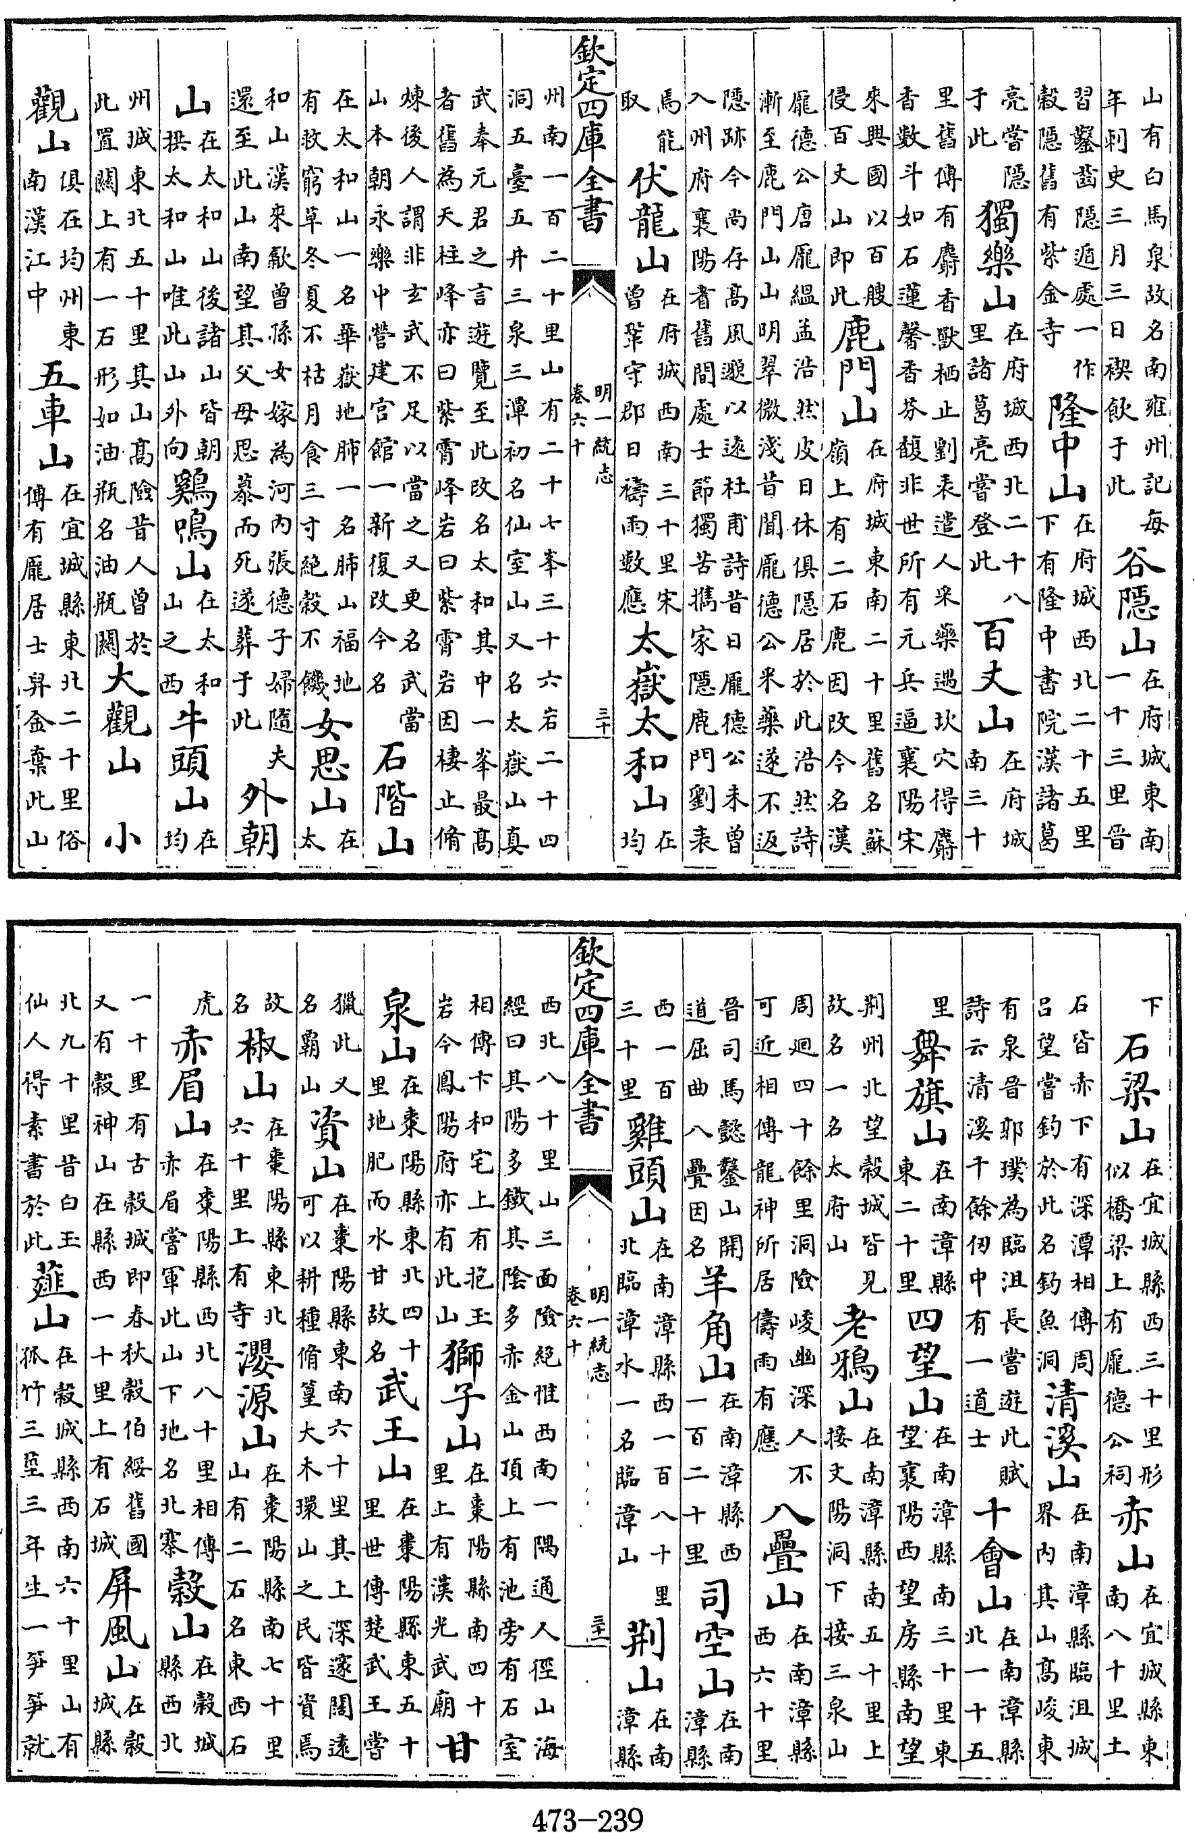 山有白馬泉故名南雍州記每年刺史三月三日禊飲于此谷隠山在府城東南一十三里晉
習鑿齒隠遁處一作榖隠舊有紫金寺隆中山在府城西北二十五里下有隆中書院漢諸葛
亮嘗隠于此獨樂山在府城西北二十八里諸葛亮嘗登此百丈山在府城南三十
里舊傳有麝香獸栖止劉表遣人采藥遇坎穴得麝香數斗如石蓮馨香芬馥非世所有元兵逼襄陽宋
來興國以百艘侵百丈山即此鹿門山在府城東南二十里舊名蘇嶺上有二石鹿因改今名漢
龎德公唐龎緼孟浩然皮日休俱隠居於此浩然詩漸至鹿門山山明翠微淺昔聞龎德公采藥遂不返
隠跡今尚存髙風邈以逺杜甫詩昔日龎德公未曾入州府襄陽耆舊間處士節獨苦攜家隠鹿門劉表
焉能取伏龍山在府城西南三十里宋曾鞏守郡日禱雨數應太嶽太和山在均
欽定四庫全書 明一統志卷六十 三十
州南一百二十里山有二十七峯三十六岩二十四洞五臺五井三泉三潭初名仙室山又名太嶽山真
武奉元君之言遊覽至此改名太和其中一峯最髙者舊為天柱峰亦曰紫霄峰岩曰紫霄岩因棲止脩
煉後人謂非玄武不足以當之又更名武當山本朝永樂中營建宫館一新復改今名石階山
在太和山一名華嶽地肺一名肺山福地有救窮草冬夏不枯月食三寸絶榖不饑女思山在太
和山漢來歙曾孫女嫁為河内張德子婦隨夫還至此山南望其父母思慕而死遂葬于此外朝
山在太和山後諸山皆朝拱太和山唯此山外向鷄鳴山在太和山之西牛頭山在均
州城東北五十里其山髙險昔人曾於此置闗上有一石形如油瓶名油瓶闗大觀山小
觀山俱在均州東南漢江中五車山在宜城縣東北二十里俗傳有龎居士舁金棄此山
下石梁山在宜城縣西三十里形似橋梁上有龎德公祠赤山在宜城縣東南八十里土
石皆赤下有深潭相傳周吕望嘗釣於此名釣魚洞清溪山在南漳縣臨沮城界内其山髙峻東
有泉晉郭璞為臨沮長嘗遊此賦詩云清溪千餘仞中有一道士十會山在南漳縣北一十五
里舞旗山在南漳縣東二十里四望山在南漳縣南三十里東望襄陽西望房縣南望
荆州北望榖城皆見故名一名太府山老鴉山在南漳縣南五十里上接文陽洞下接三泉山
周迴四十餘里洞險峻幽深人不可近相傳龍神所居禱雨有應八疊山在南漳縣西六十里
晉司馬懿鑿山開道屈曲八疊因名羊角山在南漳縣西一百二十里司空山在南漳縣
西一百三十里雞頭山在南漳縣西一百八十里北臨漳水一名臨漳山荆山在南漳縣
欽定四庫全書 明一統志卷六十 三十一
西北八十里山三面險絶惟西南一隅通人徑山海經曰其陽多鐵其陰多赤金山頂上有池旁有石室
相傳卞和宅上有抱玉岩今鳳陽府亦有此山獅子山在棗陽縣南四十里上有漢光武廟甘
泉山在棗陽縣東北四十里地肥而水甘故名武王山在棗陽縣東五十里世傳楚武王嘗
獵此又名霸山資山在棗陽縣東南六十里其上深邃闊逺可以耕種脩篁大木環山之民皆資焉
故名椒山在棗陽縣東北六十里上有寺瀴源山在棗陽縣南七十里山有二石名東西石
虎赤眉山在棗陽縣西北八十里相傳赤眉嘗軍此山下地名北寨榖山在榖城縣西北
一十里有古榖城即春秋榖伯綏舊國又有榖神山在縣西一十里上有石城屏風山在榖城縣
北九十里昔白玉仙人得素書於此薤山在榖城縣西南六十里山有孤竹三莖三年生一笋笋就
473-239